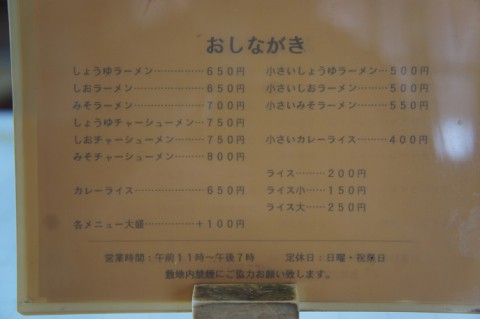 おしながき
しょうゆラーメン……………650円
しおラーメン…………………650円
みそラーメン…………………700円
しょうゆチャーシューメン…750円
しおチャーシューメン………750円
みそチャーシューメン………800円
カレーライス…………………650円
各メニュー大盛……………+100円
小さいしょうゆラーメン…500円
小さいしおラーメン………500円
小さいみそラーメン………550円
小さいカレーライス………400円
ライス……200円
ライス小…150円
ライス大…250円
営業時間:午前11時~午後7時 定休日:日曜・祝祭日
敷地内禁煙にご協力お願い致します。